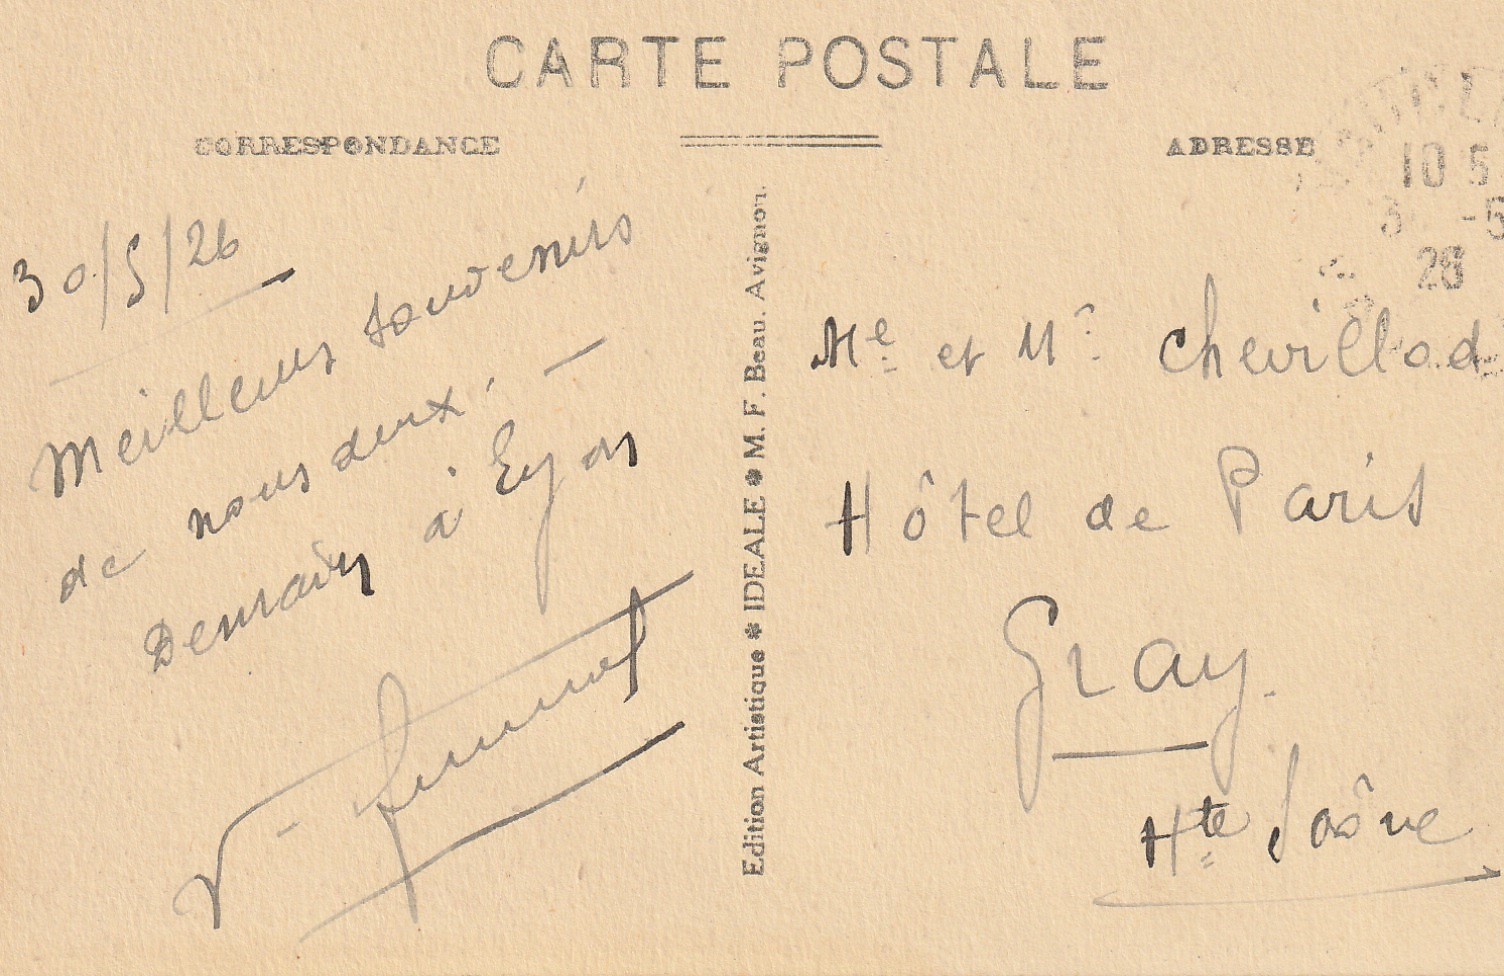 CARTE POSTALE
CORRESPONDANCE
ADRESSE
30/5/26
Meilleurs souvenirs
de nous deux.
Demain à Lyon
Edition Artistique * IDEALE * M. F. Beau. Avignon.
10
28
Me et Mr Chevillod
Hôtel de Paris
Gray.
Hte Saône